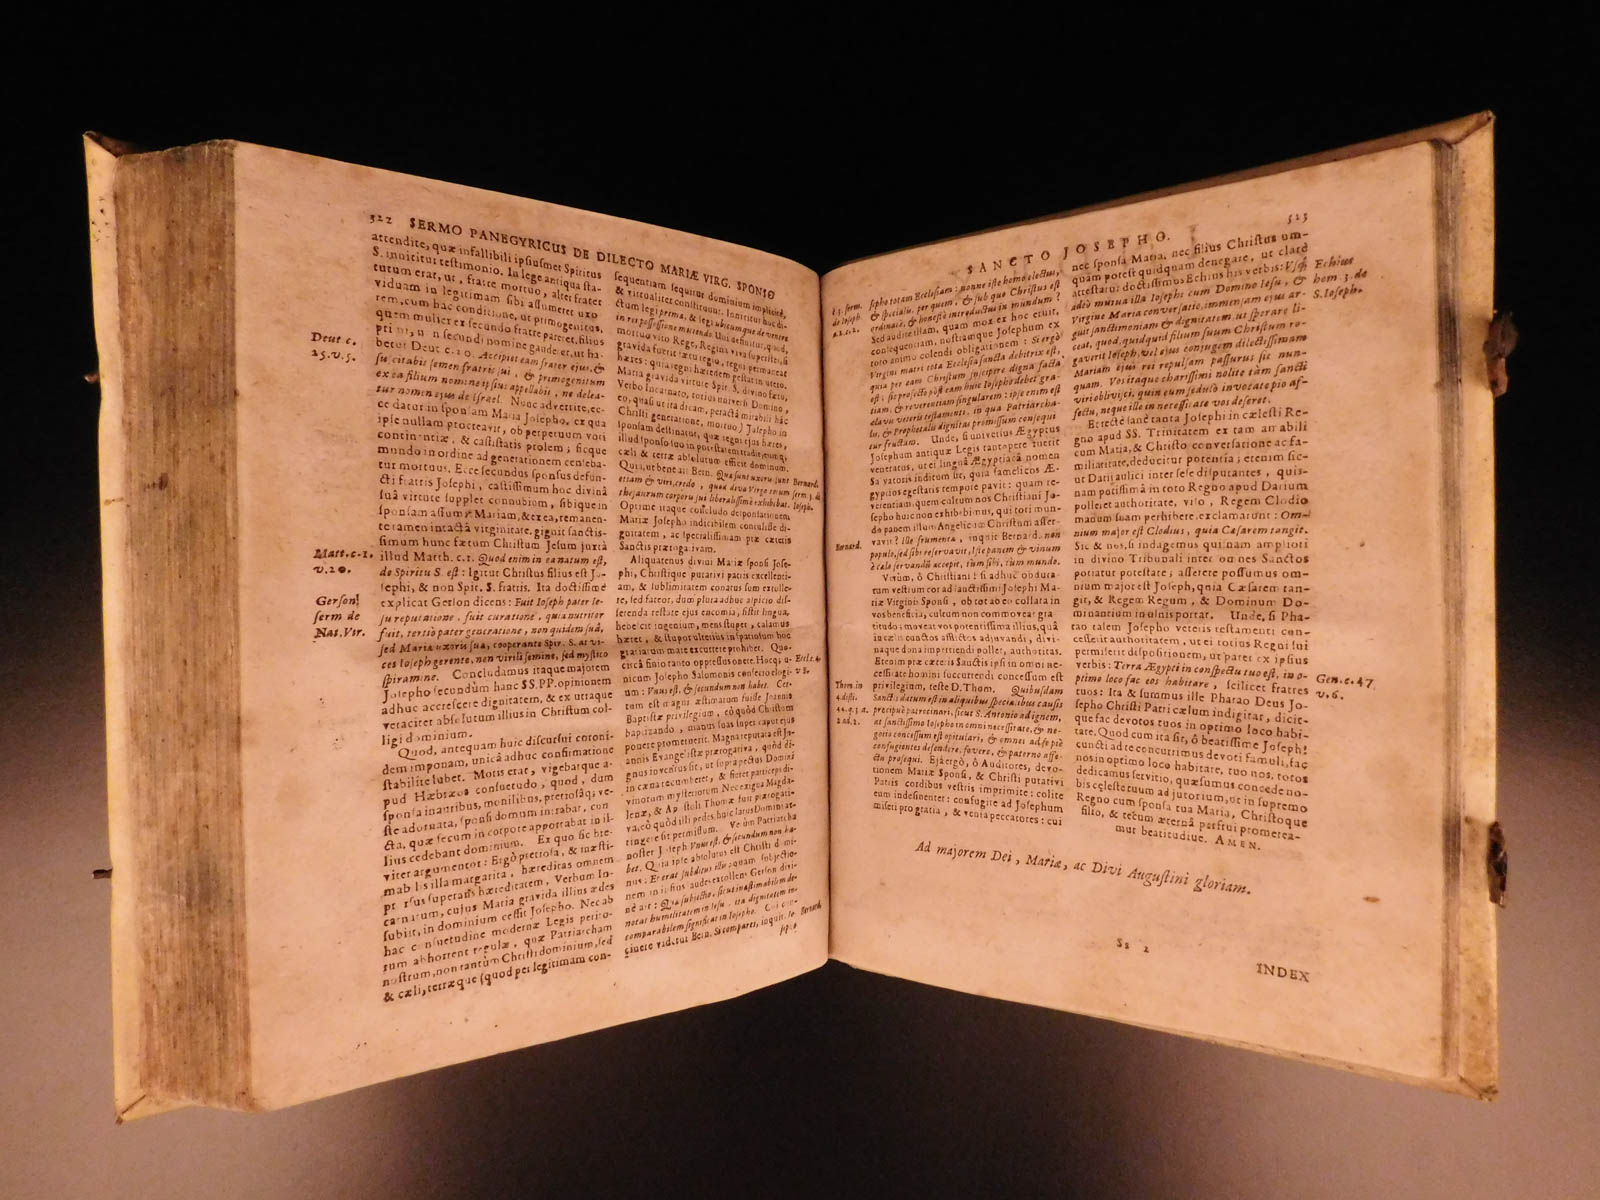 322 SERMO PANEGYRICUS DE DILECTO MARIÆ VIRG. SPONSO
attendite, quæ infallibili ipsiusmet Spiritus
S. innititur testimonio. In lege antiqua sta-
tutum erat, ut, fratre mortuo, alter frater
viduam in legitimam sibi assumeret uxo
rem, cum hac conditione, ut primogenitus,
quem mulier ex secundo fratre pareret, filius
nomine gauderet, ut ha-
betur Deut c. 10. Accipiet eam frater ejus, &
suscitabit semen fratris sui, & primogenitum
ex ea filium nomine ipsius appellabit, ne delea-
tur nomen ejus de Israel. Nunc advertite, ec-
ce datur in sponsam Maria Josepho, ex qua
ipse nullam procreavit, ob perpetuum voti
continentiæ, & castitatis prolem; sicque
mundo in ordine ad generationem censeba-
tur mortuus. Ecce secundus sponsus defun-
cti fratris Josephi, castissimum hoc divinâ
suâ virtute supplet connubium, sibique in
sponsam assumit Mariam, & ex ea, remanen-
te tamen intactâ virginitate, gignit sanctis-
simum hunc fætum Christum Jesum juxtà
illud Matth. c. 1. Quod enim in ea natum est,
de Spiritu S. est: Igitur Christus filius est Jo-
sephi, & non Spit. S. fratris. Ita doctissimè
explicat Gerson dicens: Fuit Ioseph pater Je-
su reputatione, fuit curatione, quia nutritor
fuit, tertiò pater generatione, non quidem suâ,
sed Maria uxoris sua, cooperante Spir. S. at vi-
ces Ioseph gerente, non virili semine, sed mystico
spiramine. Concludamus itaque majorem
Josepho secundùm hanc SS. PP. opinionem
adhuc accrescere dignitatem, & ex uttaque
veraciter absolutum illius in Christum col-
ligi dominium.
Quod, antequam huic discursui coroni-
dem imponam, unicâ adhuc confirmatione
stabilire lubet. Moris erat, vigebatque a-
pud Hæbræos consuetudo, quod, dum
sponsa inauribus, monilibus, pretiosâq; ve-
ste adornata, sponsi domum intrabat, con
cta, quæ secum in corpore apportabat in il-
lius cedebant dominium. Ex quo sic bre-
viter argumentor: Ergò pretiosa, & inæsti-
mabilis illa margarita, hæreditas omnem
prorsus superans hæreditatem, Verbum In-
carnatum, cujus Maria gravida illius ædes
subiit, in dominium cessit Josepho. Nec ab
hac consuetudine modernæ Legis perito-
rum abhorrent regulæ, quæ Patriarcham
nostrum, non tantùm Christi dominium, sed
& cæli, terræque (quod per legitimam con-
Deut c.
25. v. 5.
Matt. c. 1.
v. 20.
Gerson
serm de
Nat. Vir.
sequentiam sequitur dominium implicitè,
& virtualiter constituunt. Innititur hoc di-
ctum legi prima, & legi ubicumque de ventre
in possessione mittendo Ubi definitur, quòd,
mortuo vito Rege, Regina viva superstite, si
gravida fuerit fætu regio, regni permaneat
hæres: quia regni hæredem gestat in utero.
Maria gravida virtute Spir. S. divino fætu,
Verbo Incarnato, totius universi Domino,
eo, quasi ut ita dicam, peractâ mirabili hâc
Christi generatione, mortuo) Josepho in
sponsam destinatur, quæ regni ejus hæres,
illud sponso suo in potestatem tradit, eumq;
cæli & terræ absolutum efficit dominum.
Quia, ut bene ait Bern. Qua sunt uxoris sunt
etiam & viri, credo, quod diva Virgo totum
thesaurum corporis sui liberalissimè exhibebat.
Optime itaque concludo desponsationem
Mariæ Josepho indicibilem contulisse di-
gnitatem, ac specialissimam præ cæteris
Sanctis prærogativam.
Aliquatenus divini Mariæ sponsi Jose-
phi, Christique putativi patris excellenti-
am, & sublimitatem conatus sum extolle-
re, sed fateor, dum plura adhuc aspicio dis-
serenda restare ejus encomia, sistit lingua,
hebescit ingenium, mens stupet, calamus
hæret, & stupot ulteriùs in spatiosum hoc
gratiarum mare excurrere prohibet. Quo-
circâ sinio tanto oppressus onere. Hocq; u-
nicum Josepho Salomonis consecro elogi-
um: Unus est, & secundum non habet. Cer-
tum est magni æstimarum fuisse Joannis
Baptistæ privilegium, eò quòd Christum
baptizando, manus suas super caput ejus
ponere promeruerit. Magna reputata est Jo-
annis Evangelistæ prærogativa, quòd di-
gnus inventus sit, ut supra pectus Domini
in cæna recumberet, & fieret particeps di-
vinotum mysteriorum Nec exigua Magda-
lenæ, & Apostoli Thomæ fuit prærogati-
va, eò quòd illi pedes, huic latus Domini at-
tingere sit permissum. Verùm Patriarcha
noster Joseph Unus est, & secundum non ha-
bet. Quia ipse absolutus est Christi domi-
nus: Et erat subditus illis: quam subjectio-
nem in filius audet extollens Gerson divi-
nè ait: Quæ subjectio, sicut inastimabilem de-
notat humilitatem in Iesu, ita dignitatem in-
comparabilem significat in Iosepho. Cui con-
cinere videtur Bern. Si comparti, inquit, Jo
seph
Bernard.
serm 3. de
Ioseph.
Eccle. 4.
v 8.
Bernard
SANCTO JOSEPHO. 323
sepho totam Ecclesiam: nonne iste homo electus,
& specialis, per quem, & sub quo Christus est
ordinatè, & honestè introductus in mundum?
Sed audite illam, quam mox ex hoc eruit,
consequentiam, nostramque Josephum ex
toto animo colendi obligationem: Si ergò
Virgini matri tota Ecclesia sancta debitrix est,
quia per eam Christum suscipere digna facta
est, sic profectò post eam huic Iosepho debet gra-
tiam, & reverentiam singularem: ipse enim est
clavis veteris testamenti, in qua Patriarcha-
lis, & Prophetalis dignitas promissum consequi
tur fructum. Unde, si universus Ægyptus
Josephum antiquæ Legis tantopere fuerit
veneratus, ut ei linguâ Ægyptiacâ nomen
Salvatoris inditum sit, quia famelicos Æ-
gyptios egestatis tempore pavit: quam re-
verentiam, quem cultum nos Christiani Jo-
sepho huic non exhibebimus, qui toti mun-
do panem illum Angelicum Christum asser-
vavit? Ille frumenta, inquit Bernard. non
populo, sed sibi reservavit, Iste panem & vinum
è cælo servandũ accepit, tum sibi, tum mundo.
Verùm, ô Christiani! si adhuc obdura-
tum vestrum cor ad sanctissimi Josephi Ma-
riæ Virginis Sponsi, ob tot ab eo collata in
vos beneficia, cultum non commovet gra-
titudo; moveat vos potentissima illius, quâ
in cælis cunctos afflictos adjuvandi, divi-
naque dona impertiendi pollet, authoritas.
Etenim præ cæteris Sanctis ipsi in omni ne-
cessitate homini succurrendi concessum est
privilegium, teste D. Thom. Quibusdam
Sanctis datum est in aliquibus specialibus causis
præcipuè patrocinari, sicut S. Antonio ad ignem,
at sanctissimo Iosepho in omni necessitate, & ne-
gotio concessum est opitulari, & omnes ad se piè
confugientes defendere, fovere, & paterno affe-
ctu prosequi. Ejà ergò, ô Auditores, devo-
tionem Mariæ Sponsi, & Christi putativi
Patris cordibus vestris imprimite: colite
eum indesinenter: confugite ad Josephum
miseri pro gratia, & venia peccatores: cui
t. 3. serm.
de Ioseph.
a. 2. c. 2.
Bernard.
Thom. in
4. dist.
44. q. 3. a.
2 ad. 2.
nec sponsa Maria, nec filius Christus um-
quam potest quidquam denegare, ut clarè
attestatur doctissimus Echius his verbis: Usq;
adeò mutua illa Iosephi cum Domino Iesu, &
Virgine Maria conversatio, immensam ejus ar-
guit sanctimoniam & dignitatem ut sperare li-
ceat, quod, quidquid filium suum Christum ro-
gaverit Ioseph, vel ejus conjugem dilectissimam
Mariam ejus rei repulsam passurus sit nun-
quam. Vos itaque charissimi nolite tàm sancti
viri oblivisci, quin eum sedulò invocate pio af-
fectu, neque ille in necessitate vos deseret.
Et rectè sanè tanta Josephi in cælesti Re-
gno apud SS. Trinitatem ex tam amabili
cum Maria, & Christo conversatione ac fa-
miliatitate, deducitur potentia; etenim sic-
ut Darii aulici inter sese disputantes, quis-
nam potissimâ in toto Regno apud Darium
polleret authoritate, viso, Regem Clodio
manum suam perhibere, exclamarunt: Om-
nium major est Clodius, quia Casarem tangit.
Sic & nos, si indagemus quinam ampliori
in divino Tribunali inter omnes Sanctos
potiatur potestate; asserere possumus om-
nium major est Joseph, quia Cæsarem tan-
git, & Regem Regum, & Dominum Do-
minantium in ulnis portat. Unde, si Pha-
rao talem Josepho veteris testamenti con-
cesserit authoritatem, ut ei totius Regni sui
permiserit dispositionem, ut patet ex ipsius
verbis: Terra Ægypti in conspectu tuo est, in o-
ptimo loco fac eos habitare, scilicet fratres
tuos: Ita & summus ille Pharao Deus Jo-
sepho Christi Patri cælum indigitat, dicit-
que fac devotos tuos in optimo loco habi-
tate. Quod cum ita sit, ô beatissime Joseph!
cuncti ad te concurrimus devoti famuli, fac
nos in optimo loco habitare, tuo nos, totos
dedicamus servitio, quæsumus concede no-
bis cælestecuum adjutorium, ut in supremo
Regno cum sponsa tua Maria, Christoque
filio, & tecum æternâ perfrui promerea-
mur beatitudine. AMEN.
Echius
hom. 3. de
S. Ioseph.
Gen. c. 47.
v. 6.
Ad majorem Dei, Mariæ, ac Divi Augustini gloriam.
Ss 2
INDEX